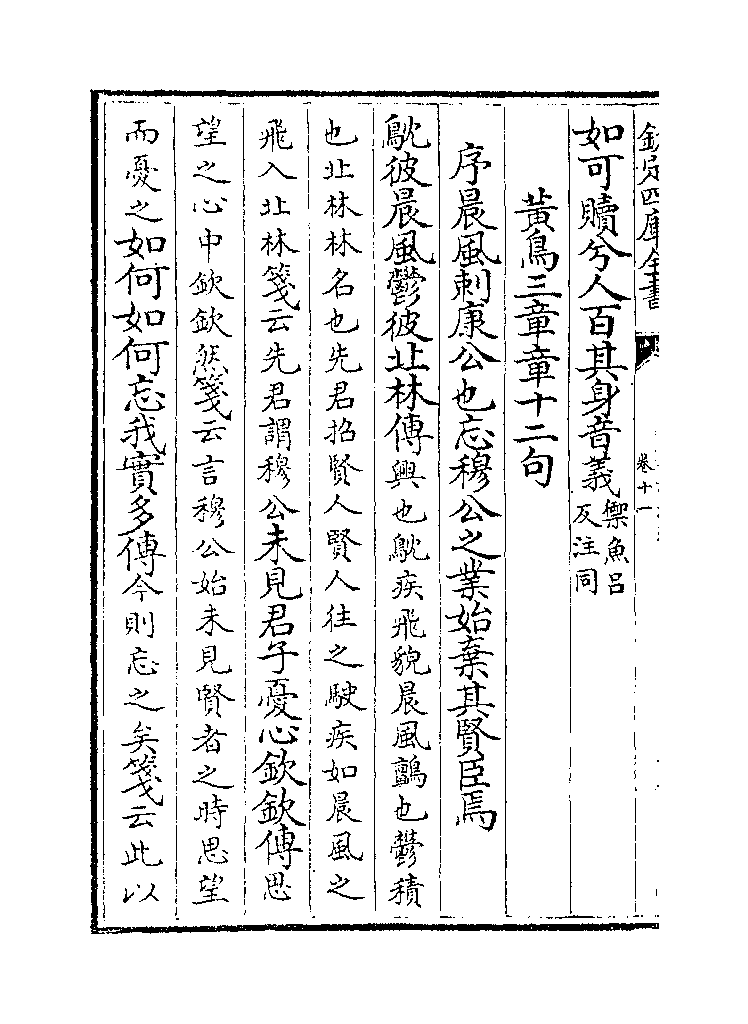 欽定四庫全書
卷十一
如可贖兮人百其身音義禦魚呂
反注同
黃鳥三章章十二句
序晨風刺康公也忘穆公之業始棄其賢臣焉
鴥彼晨風鬱彼北林傳興也鴥疾飛貌晨風鸇也鬱積
也北林林名也先君招賢人賢人往之駛疾如晨風之
飛入北林箋云先君謂穆公未見君子憂心欽欽傳思
望之心中欽欽然箋云言穆公始未見賢者之時思望
而憂之如何如何忘我實多傳今則忘之矣箋云此以